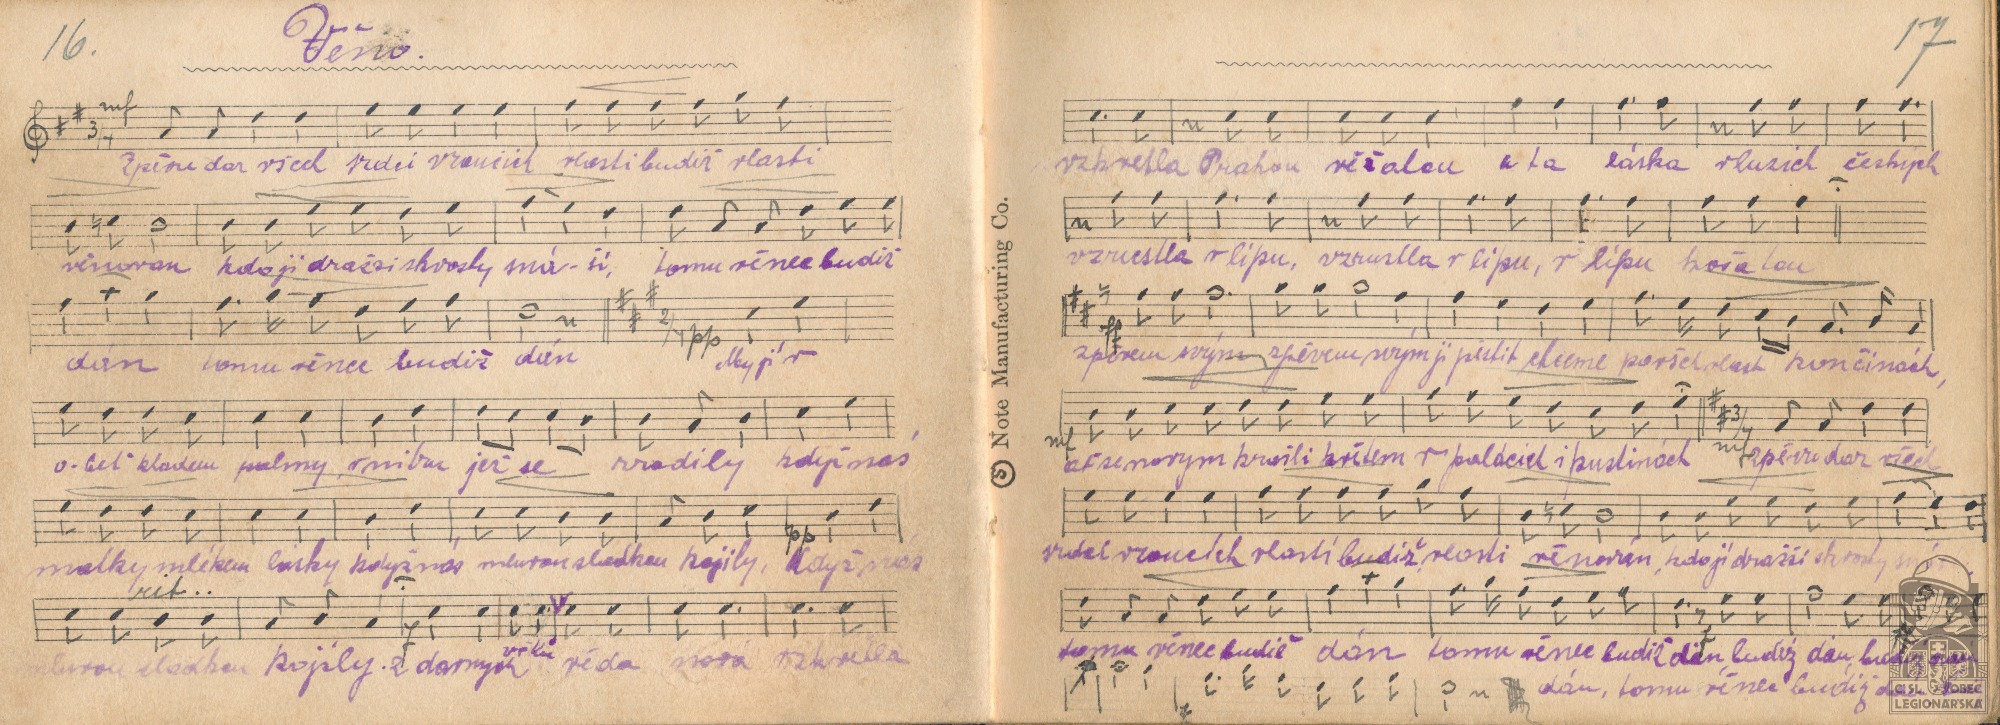 16.
Věno.
mf
Zpěvu dar všech srdcí vroucích vlasti budiž vlasti
věnován kdo jí dražší skvosty má-ší, tomu věnec budiž
dán tomu věnec budiž dán pp My jí v
o-běť kladem palmy, v nibm jež se zrodily když nás
matky mlékem lásky když nás mluvou sladkou kojily, pp Když nás
rit..
mluvou sladkou kojily. Z darných věků věda nová vzkvetla
Note Manufacturing Co.
17
vzkvetla Prahou věčalou a ta láska v luzích českých
vzrostla v lípu, vzrostla v lípu, v lípu košatou
zpěvem svým zpěvem svým jí pěstit chceme po všech vlasti končinách,
mf
ať se novým krášlí květem v palácích i pustinách mf zpěvu dar všech
srdcí vroucích vlasti budiž, vlasti věnován, kdo jí dražší skvosty má-
tomu věnec budiž dán tomu věnec budiž dán budiž dán, budiž
dán, tomu věnec budiž dán
ČSL. OBEC
LEGIONÁŘSKÁ